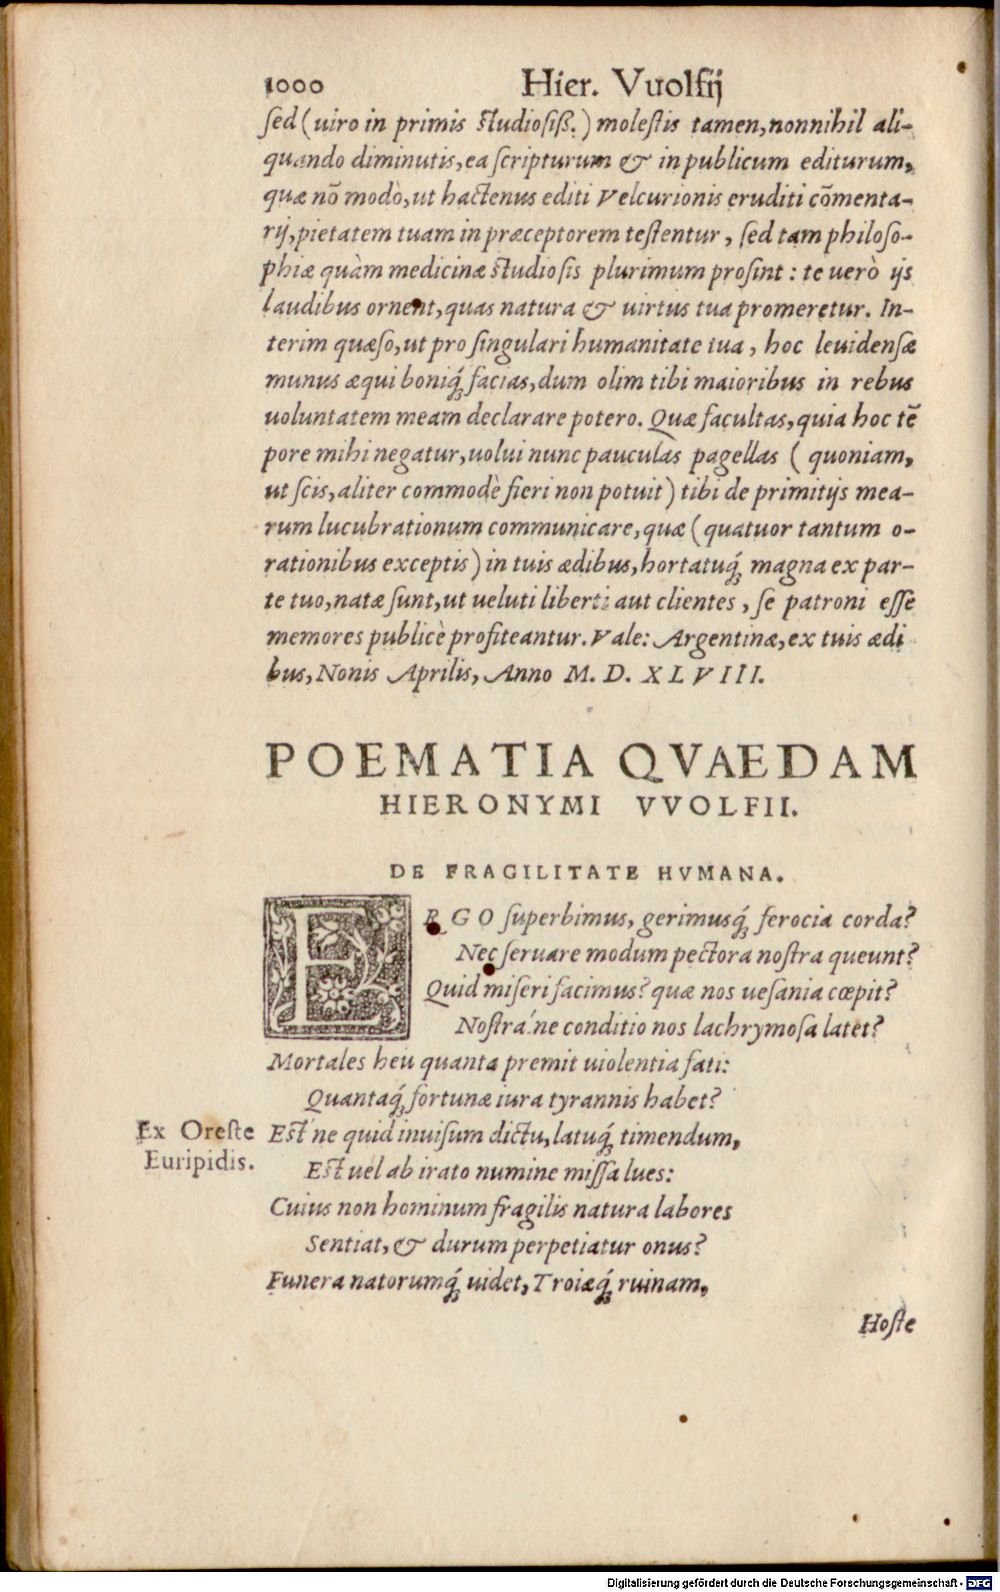 1000 Hier. Vuolfij
sed (uiro in primis studiosiß.) molestis tamen, nonnihil ali-
quando diminutis, ea scripturum & in publicum editurum,
quæ nō modò, ut hactenus editi Velcurionis eruditi cōmenta-
rij, pietatem tuam in præceptorem testentur, sed tam philoso-
phiæ quàm medicinæ studiosis plurimum prosint: te uerò ijs
laudibus ornent, quas natura & uirtus tua promeretur. In-
terim quæso, ut pro singulari humanitate tua, hoc leuidensæ
munus æqui boniq́; facias, dum olim tibi maioribus in rebus
uoluntatem meam declarare potero. Quæ facultas, quia hoc tē
pore mihi negatur, uolui nunc pauculas pagellas (quoniam,
ut scis, aliter commodè fieri non potuit) tibi de primitijs mea-
rum lucubrationum communicare, quæ (quatuor tantum o-
rationibus exceptis) in tuis ædibus, hortatuq́; magna ex par-
te tuo, natæ sunt, ut ueluti liberti aut clientes, se patroni esse
memores publicè profiteantur. Vale: Argentinæ, ex tuis ædi
bus, Nonis Aprilis, Anno M. D. XLVIII.
POEMATIA QVAEDAM
HIERONYMI VVOLFII.
DE FRAGILITATE HVMANA.
ERGO superbimus, gerimusq́; ferocia corda?
Nec seruare modum pectora nostra queunt?
Quid miseri facimus? quæ nos uesania cœpit?
Nostra'ne conditio nos lachrymosa latet?
Mortales heu quanta premit uiolentia fati:
Quantaq́; fortunæ iura tyrannis habet?
Ex Oreste
Euripidis.
Est'ne quid inuisum dictu, latuq́; timendum,
Est uel ab irato numine missa lues:
Cuius non hominum fragilis natura labores
Sentiat, & durum perpetiatur onus?
Funera natorumq́; uidet, Troiæq́; ruinam,
Hoste
Digitalisierung gefördert durch die Deutsche Forschungsgemeinschaft - DFG